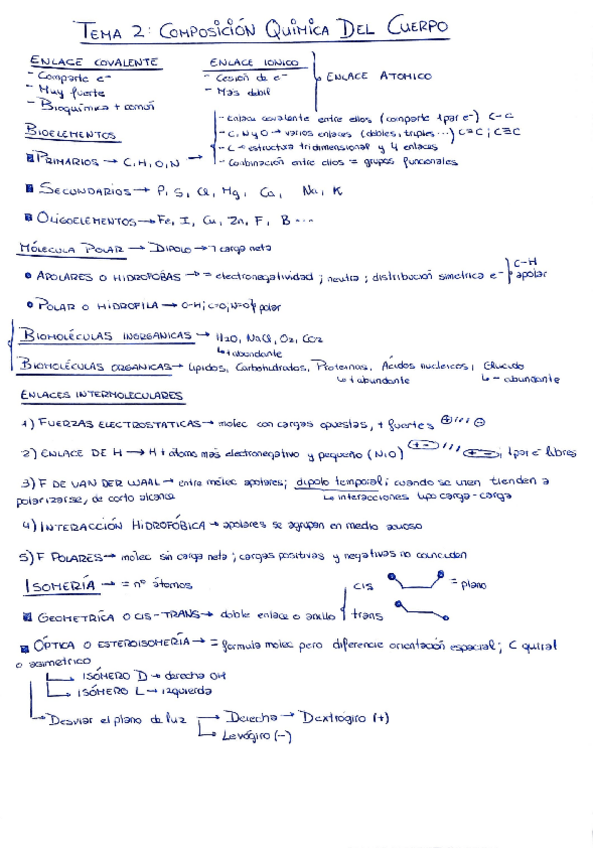 TEMA 2: COMPOSICIÓN QUIMICA DEL CUERPO
ENLACE COVALENTE
- Comparte e-
- Muy fuerte
- Bioquímica + común
ENLACE IONICO
- Cesión de e-
- Más debil
ENLACE ATOMICO
BIOELEMENTOS
PRIMARIOS → C, H, O, N →
- Enlace covalente entre ellos (comparte 1 par e-) C-C
- C, N y O → varios enlaces (dobles, triples...) C=C; C≡C
- C → estructura tridimensional y 4 enlaces
- Combinación entre ellos = grupos funcionales
SECUNDARIOS → P, S, Cl, Mg, Ca, Na, K
OLIGOELEMENTOS → Fe, I, Cu, Zn, F, B...
MÓLECULA POLAR → DIPOLO → 7 carga neta
APOLARES O HIDROFOBAS → = electronegatividad; neutra; distribución simetrica e- C-H apolar
POLAR O HIDROFILA → O-H; C=O; N=O polar
BIOMOLÉCULAS INORGANICAS → H2O, NaCl, O2, CO2
↳ + abundante
BIOMOLÉCULAS ORGANICAS → Lipidos, Carbohidratos, Proteinas, Ácidos nucleicos, Glucido
↳ + abundante ↳ - abundante
ENLACES INTERMOLECULARES
1) FUERZAS ELECTROSTATICAS → molec con cargas opuestas, + fuertes ⊕ ''' ⊖
2) ENLACE DE H → H + átomo más electronegativo y pequeño (N, O) (+ -) ''' (+ -); 1 par e- libres
3) F DE VAN DER WAAL → entre molec apolares; dipolo temporal; cuando se unen tienden a
polarizarse, de corto alcance ↳ interacciones tipo carga-carga
4) INTERACCIÓN HIDROFÓBICA → apolares se agrupan en medio acuoso
5) F POLARES → molec sin carga neta; cargas positivas y negativas no coinciden
ISOMERÍA → = nº átomos
GEOMETRÍCA O CIS-TRANS → doble enlace o anillo
cis = plano
trans
ÓPTICA O ESTEROISOMERÍA → = formula molec pero diferencie orientación espacial; C quiral
o asimetrico
↳ ISÓMERO D → derecha OH
↳ ISÓMERO L → izquierda
↳ Desviar el plano de luz → Derecha → Dextrógiro (+)
↳ Levógiro (-)